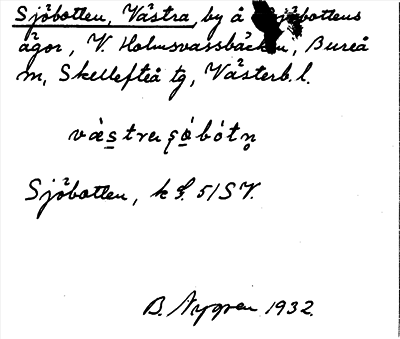 Sjöbotten, Västra, by å Sjöbottens
ägor, V. Holmsvassbäcken, Bureå
sn, Skellefteå tg, Västerb. l.
Sjöbotten, k f. 51 SV.
B. Nygren 1932.